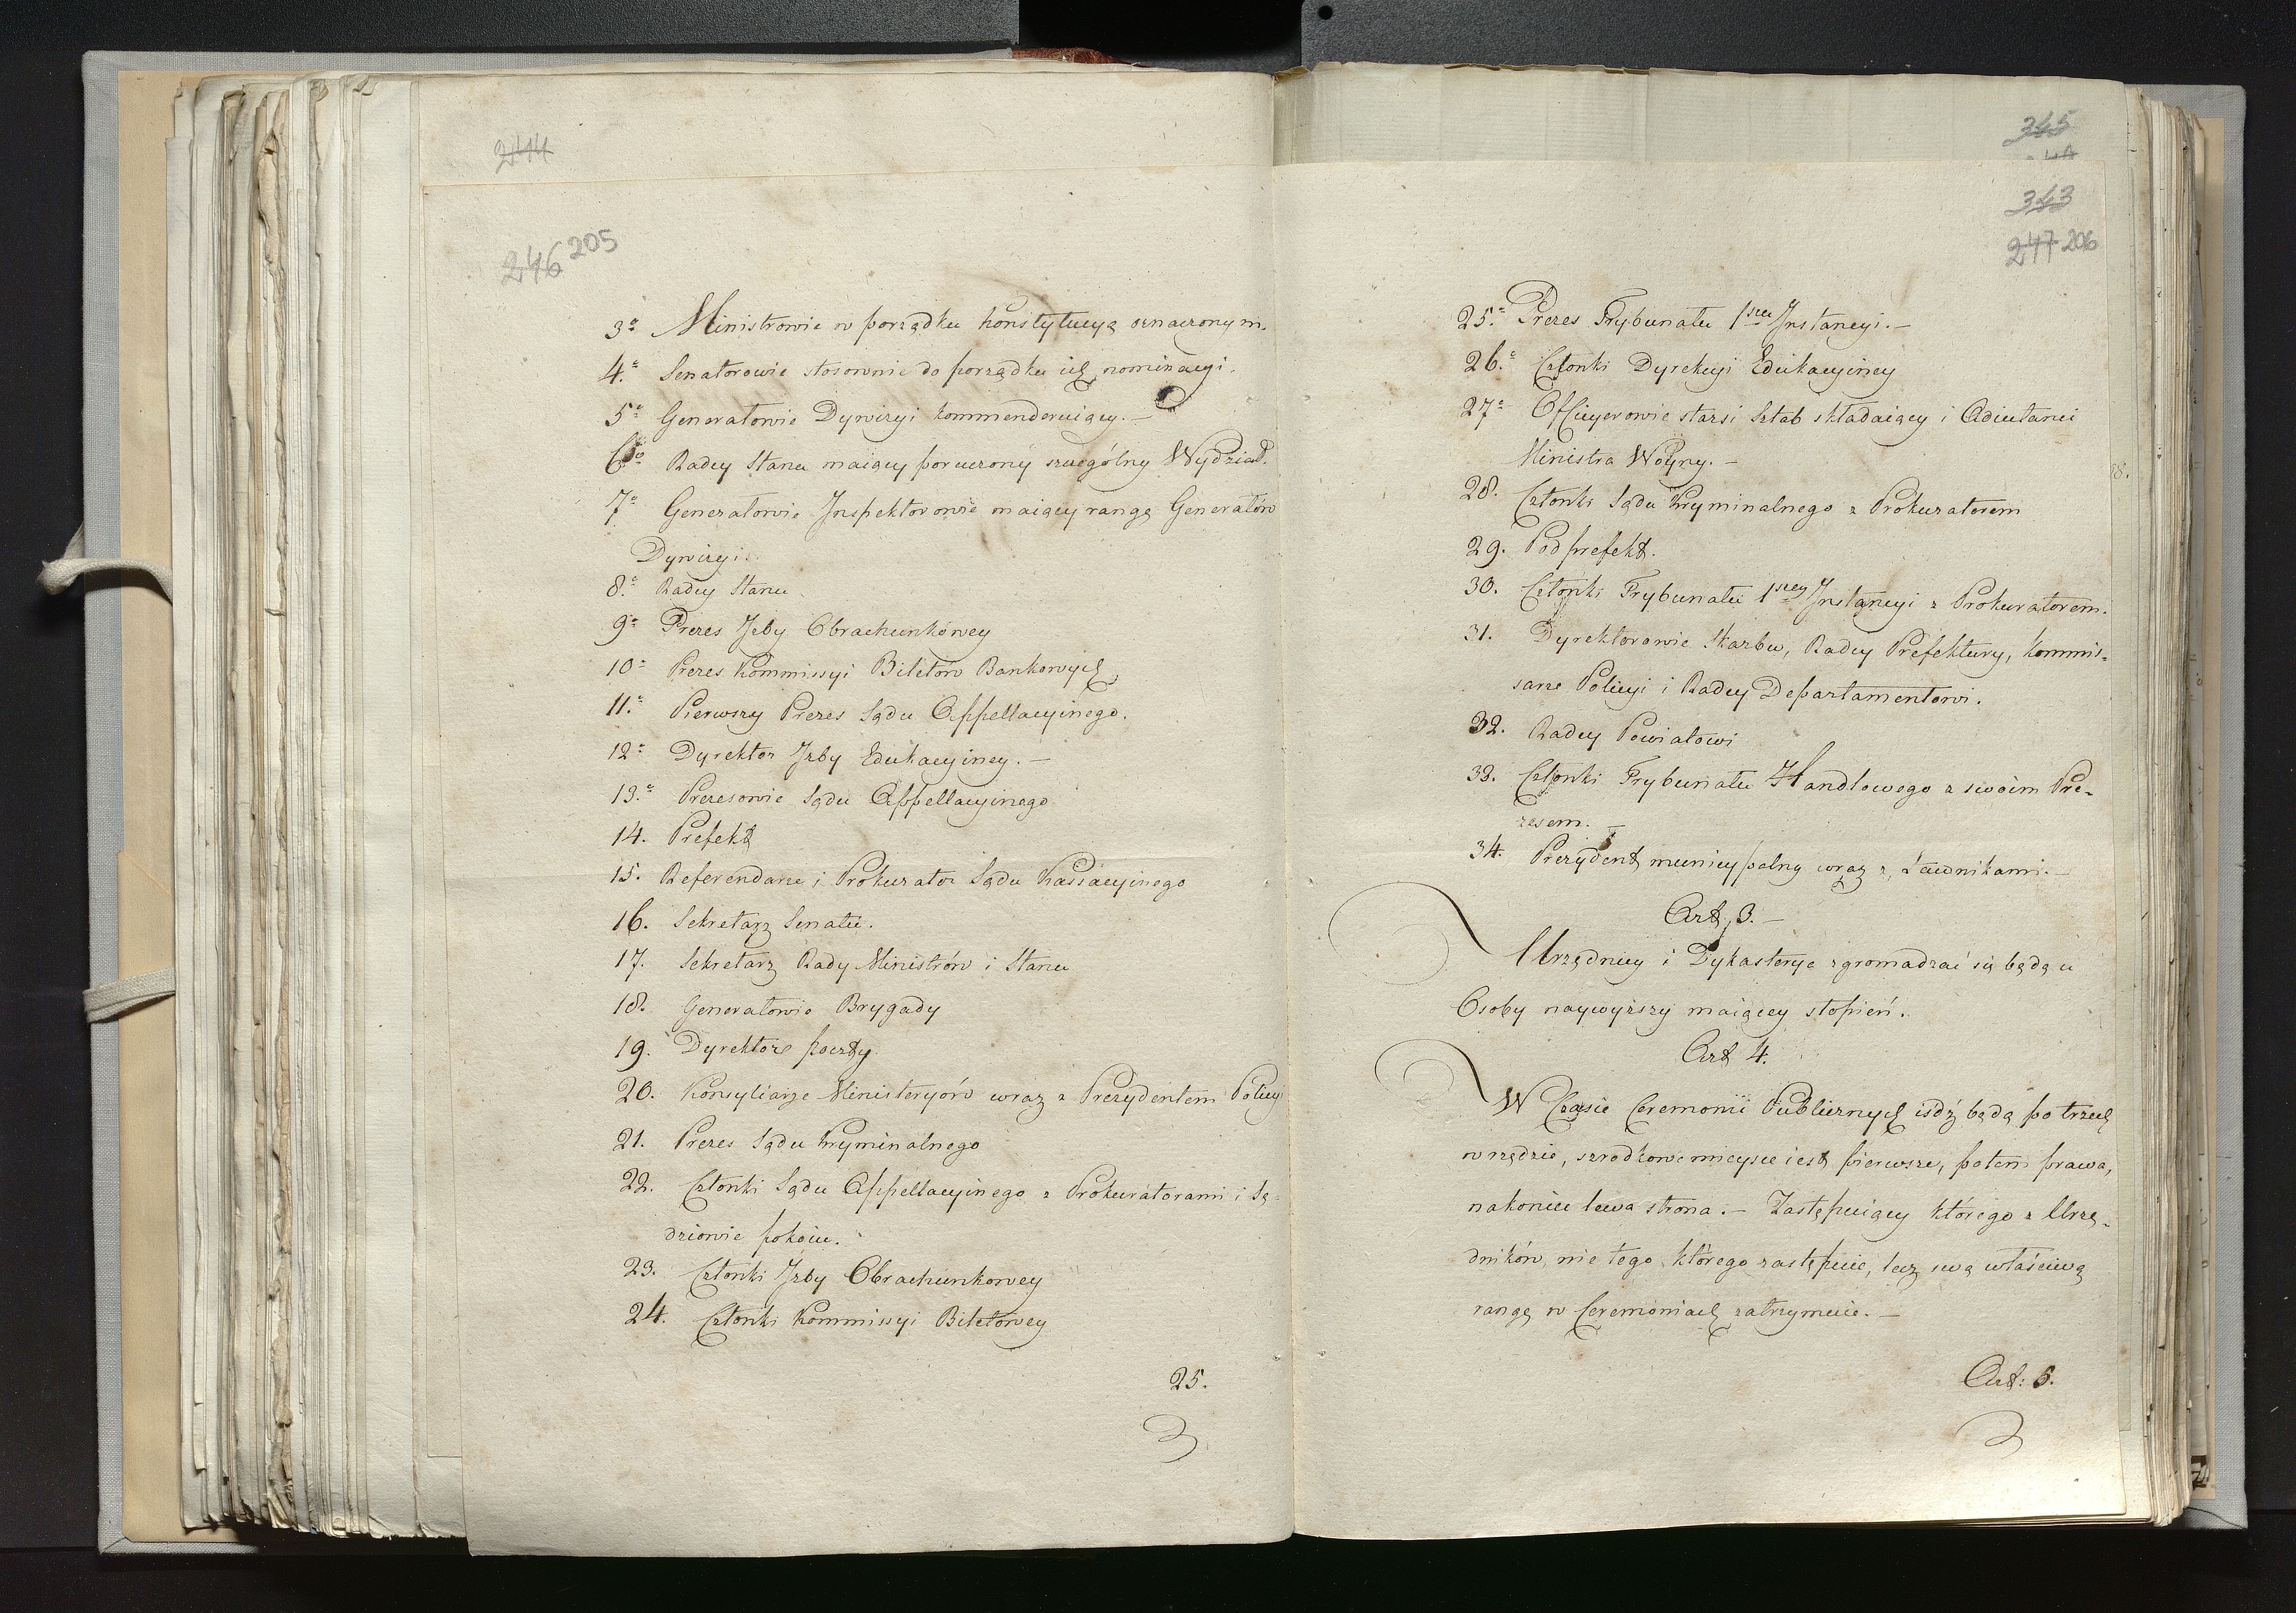 244
246 205
3º Ministrowie w porządku konstytucyą oznaczonym.
4.º Senatorowie stosownie do porządku ich nominacyi.
5º Generałowie Dywizyi kommenderuiący. —
6º Radcy Stanu maiący poruczony szczególny Wydział.
7º Generałowie Jnspektorowie maiący rangę Generałów
Dywizyi.
8.º Radcy Stanu
9º Prezes Jzby Obrachunkowey
10º Prezes Kommissyi Biletów Bankowych
11.º Pierwszy Prezes Sądu Appellacyinego.
12º Dyrektor Jzby Edukacyiney. —
13.º Prezesowie Sądu Appellacyinego
14. Prefekt
15. Referendarze i Prokurator Sądu Kassacyinego
16. Sekretarz Senatu.
17. Sekretarz Rady Ministrów i Stanu
18. Generałowie Brygady
19. Dyrektor poczty
20. Konsyliarze Ministeryów wraz z Prezydentem Policyi
21. Prezes Sądu Kryminalnego
22. Członki Sądu Appellacyinego z Prokuratorami i Sę-
dziowie pokoiu.
23. Członki Jzby Obrachunkowey
24. Członki Kommissyi Biletowey
25.
345
343
247 206
25.º Prezes Trybunatu 1szey Jnstancyi. —
26.º Członki Dyrekcyi Edukacyiney
27º Officyerowie starsi Sztab składaiący i Adiutanci
Ministra Woyny. —
28. Członki Sądu Kryminalnego z Prokuratorem
29. Podprefekt.
30. Członki Trybunatu 1szey Jnstancyi z Prokuratorem.
31. Dyrektorowie Skarbu, Radcy Prefektury, Kommis-
sarze Policyi i Radcy Departamentowi.
32. Radcy Powiatowi
33. Członki Trybunatu Handlowego z swoim Pre-
zesem. —
34. Prezydent municypalny wraz z Ławnikami. —
Art. 3. —
Urzędnicy i Dykasterye zgromadzać się będą u
Osoby naywyższy maiącey stopień.
Art 4.
W Czasie Ceremonii Publicznych iśdź będą po trzech
w rzędzie, szrodkowe mieysce iest pierwsze, potem prawa,
nakoniec lewa strona. — Zastępuiący którego z Urzę-
dników, nie tego którego zastępuie, lecz swą właściwą
rangę w Ceremoniach zatrzymuie. —
Art: 5.